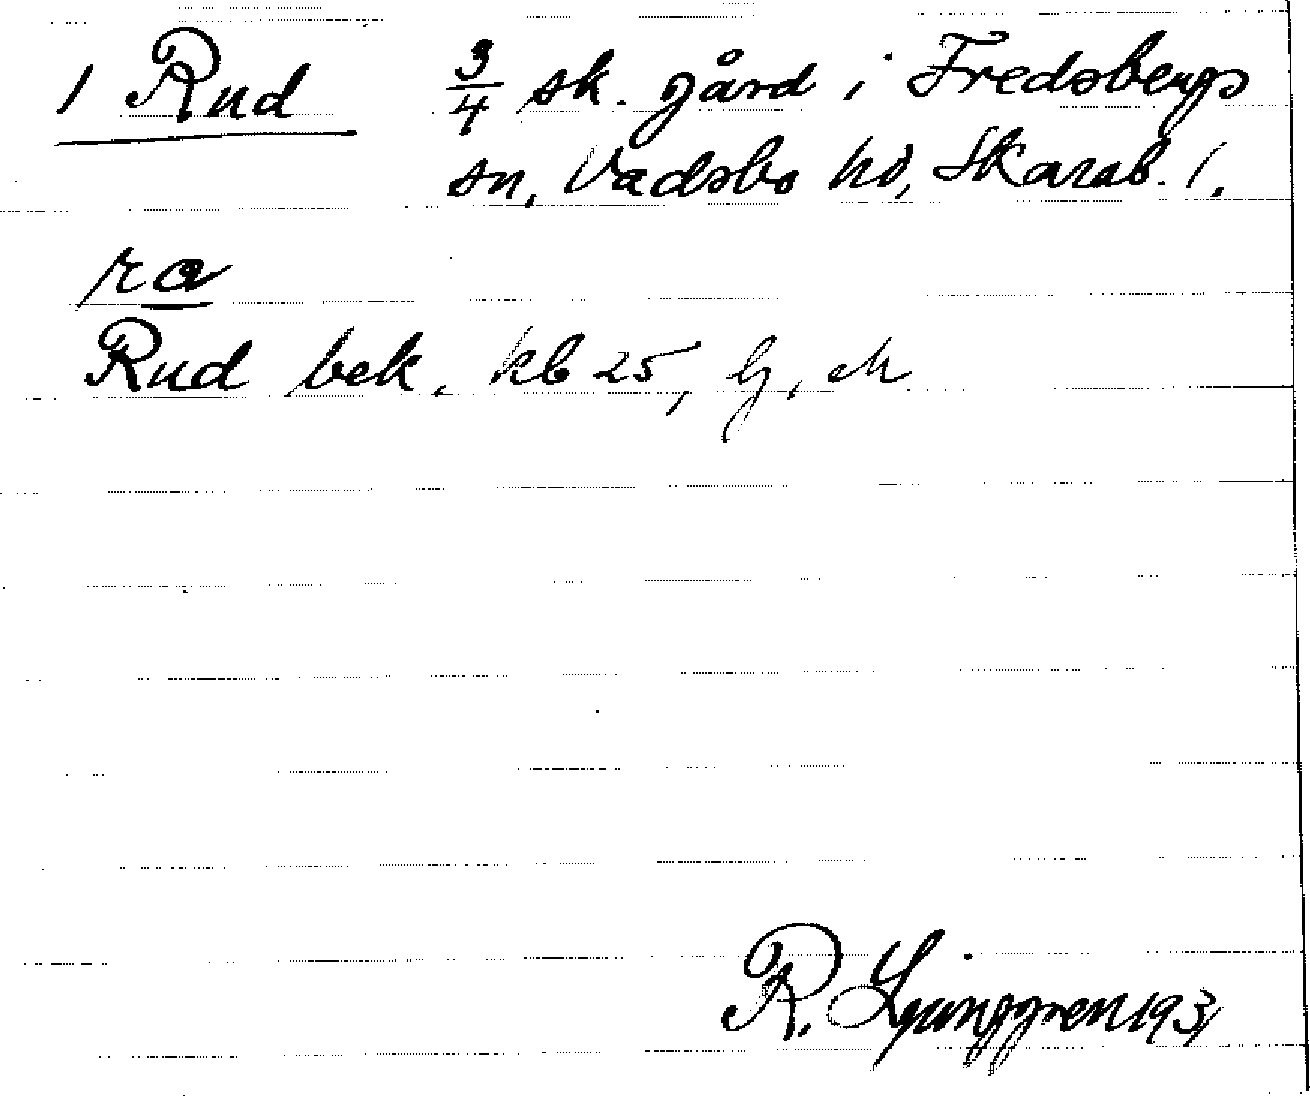 1 Rud 3/4 sk. gård i Fredsbergs
sn, Vadsbo hd, Skarab. l.
ra
Rud bek. kb 25,
R. Ljunggren 1931